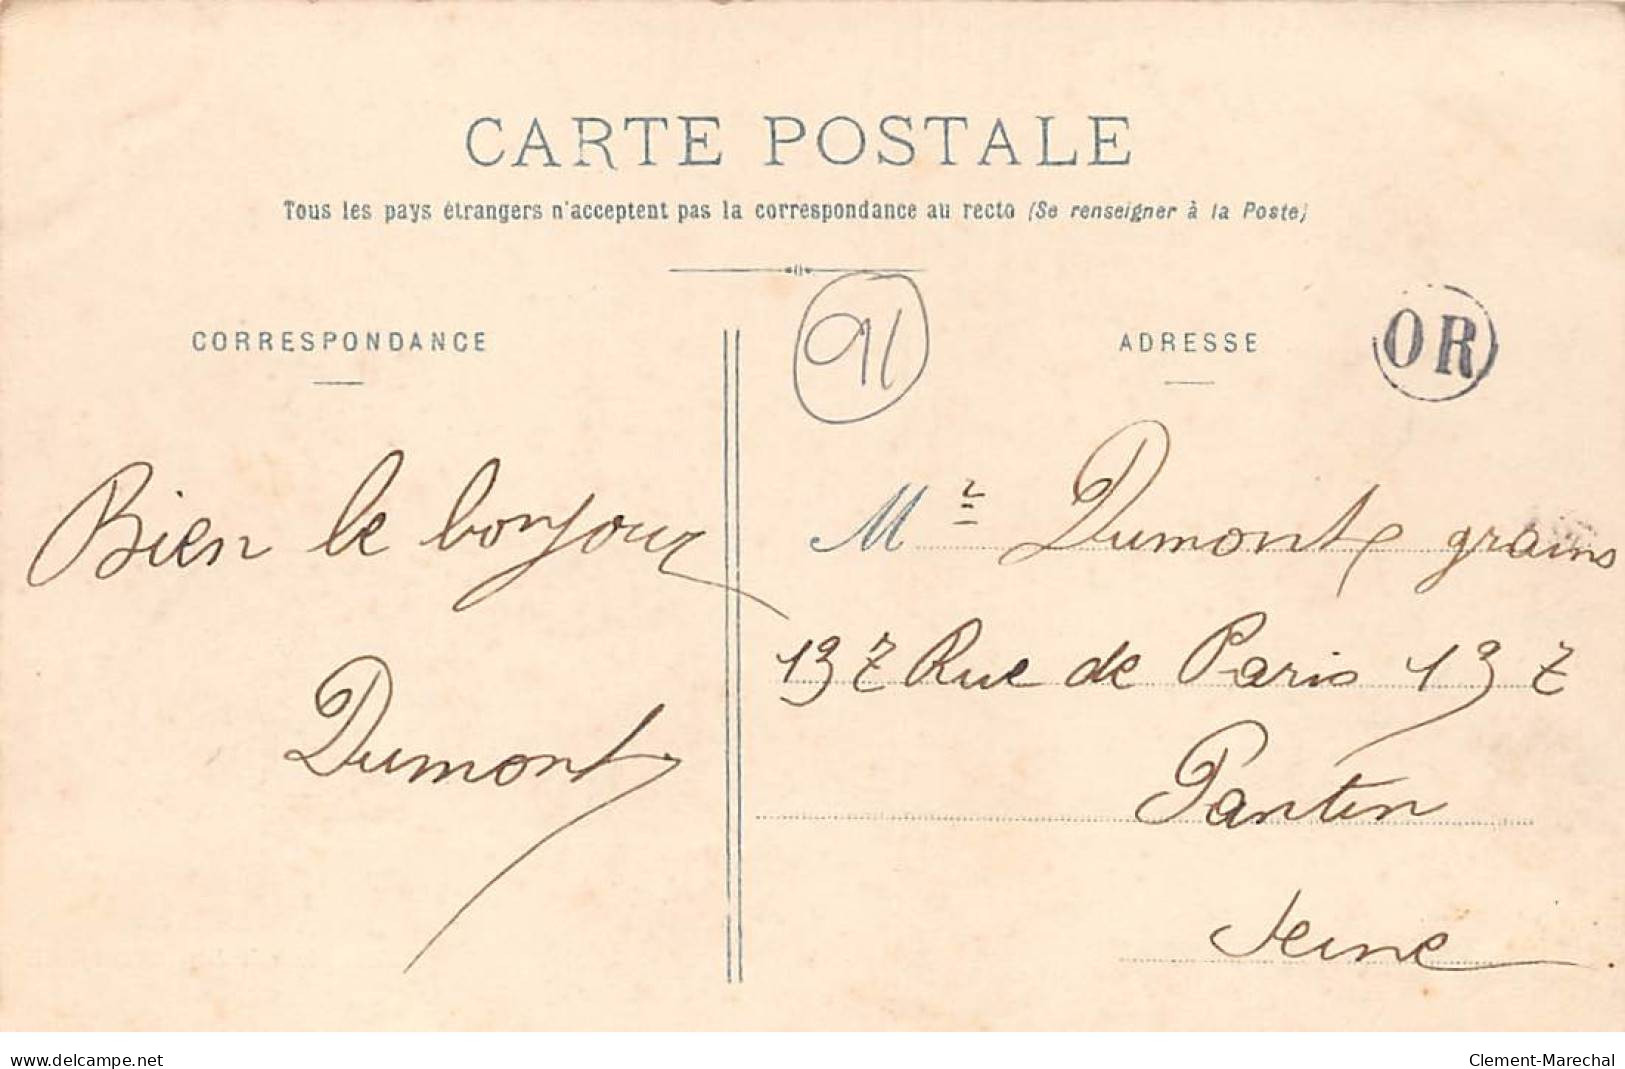 CARTE POSTALE
Tous les pays étrangers n'acceptent pas la correspondance au recto (Se renseigner à la Poste)
CORRESPONDANCE
91
ADRESSE
OR
Bien le bonjour
Dumont
Mr Dumont grains
137 Rue de Paris 137
Pantin
Seine
www.delcampe.net
Clement-Marechal